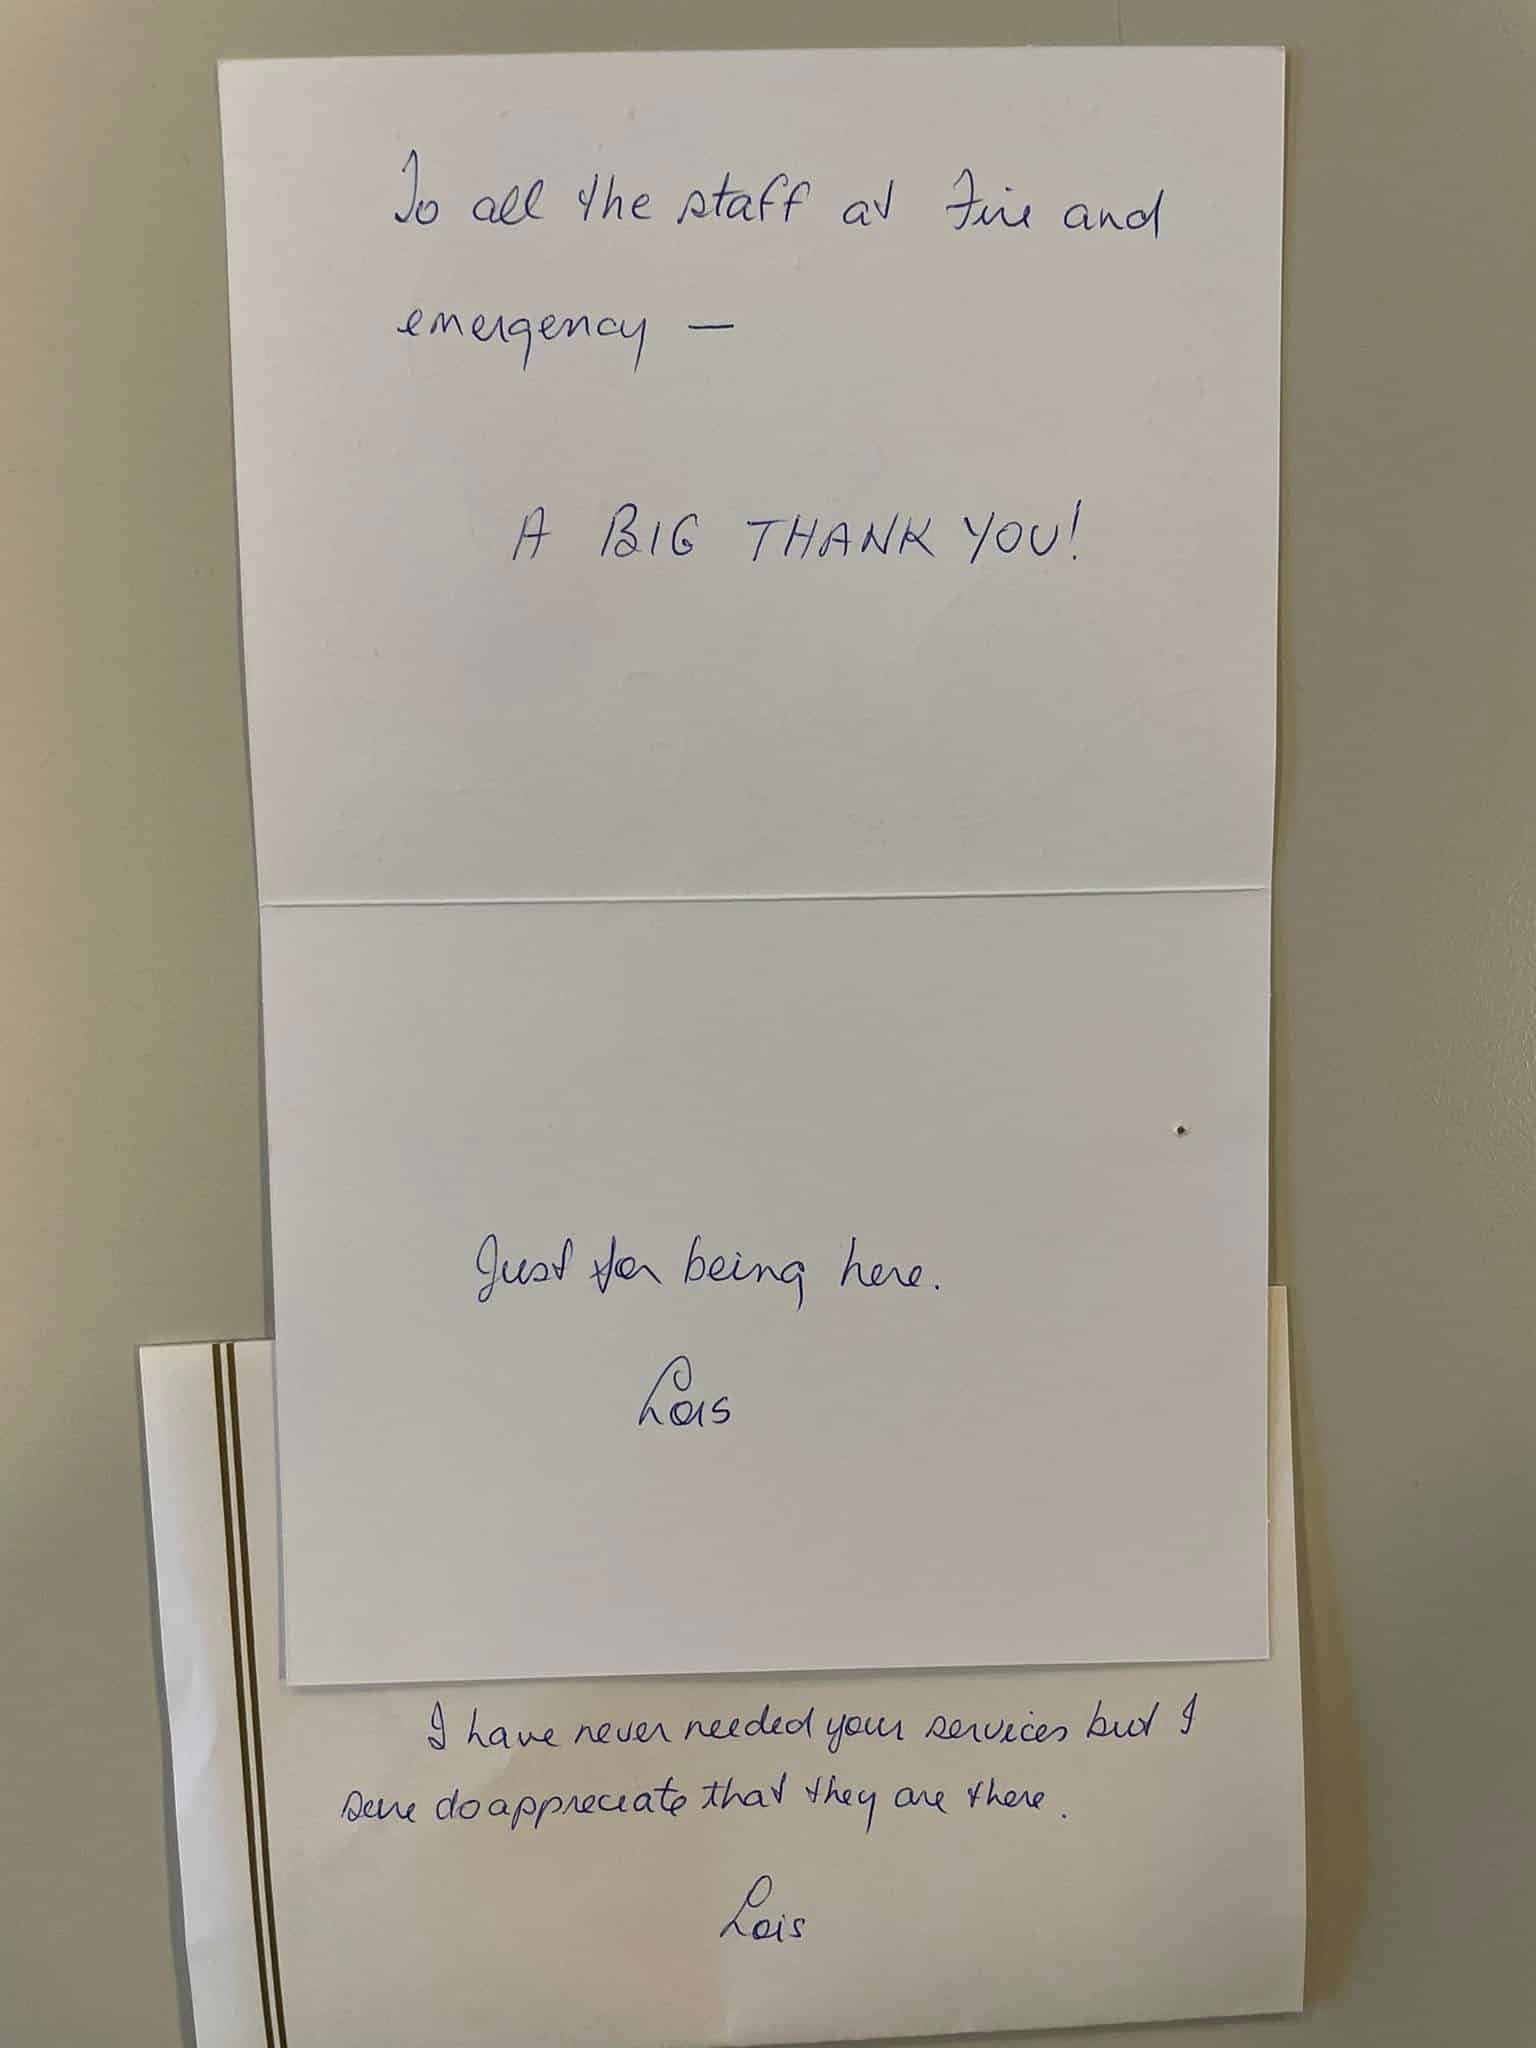 To all the staff at Fire and
emergency —
A BIG THANK YOU!
Just for being here.
Lois
I have never needed your services but I
sure do appreciate that they are there.
Lois